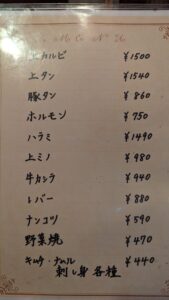 カルビ ¥1500
上タン ¥1540
豚タン ¥860
ホルモン ¥750
ハラミ ¥1490
上ミノ ¥980
牛カシラ ¥940
レバー ¥880
ナンコツ ¥590
野菜焼 ¥470
キムチ・ナムル ¥440
刺し身 各種